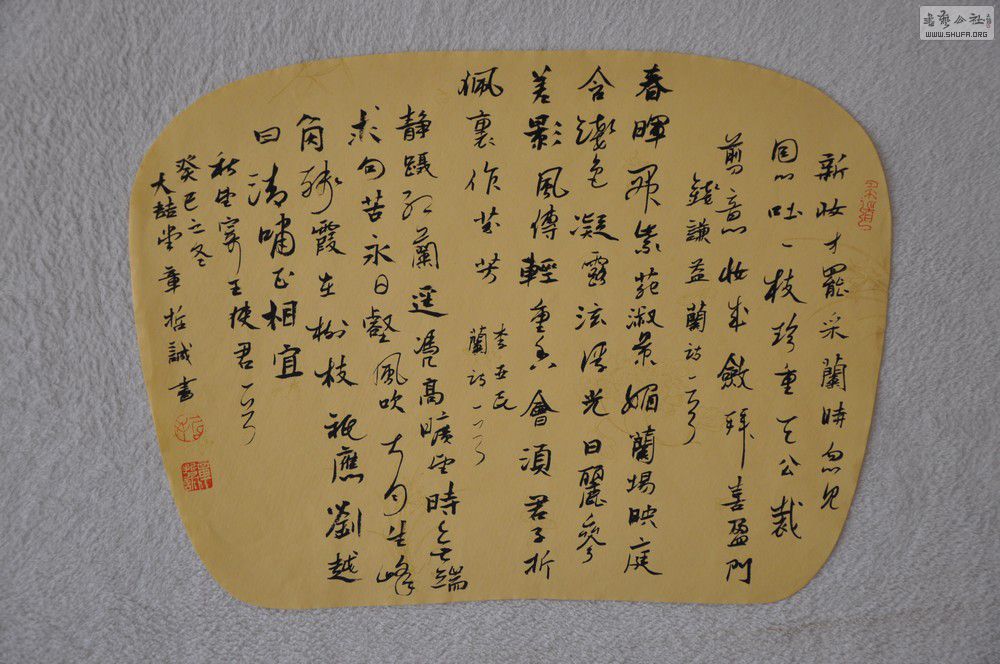 新妝才罷采蘭時忽見
同心吐一枝珍重天公裁
剪意妝成斂拜喜盈門
錢謙益蘭詩一首
春暉開紫苑淑景媚蘭場映庭
含淺色凝露泫浮光日麗參
差影風傳輕重香會須君子折
佩裏作芬芳
李世民
蘭詩一首
靜躡紅蘭逕憑高曠望時無端
求句苦永日壑風吹生峰
角殘霞在樹枝祇應劉越
石清嘯正相宜
秋望寄王使君一首
癸巳之冬
大喆堂章哲誠書
WWW.SHUFA.ORG